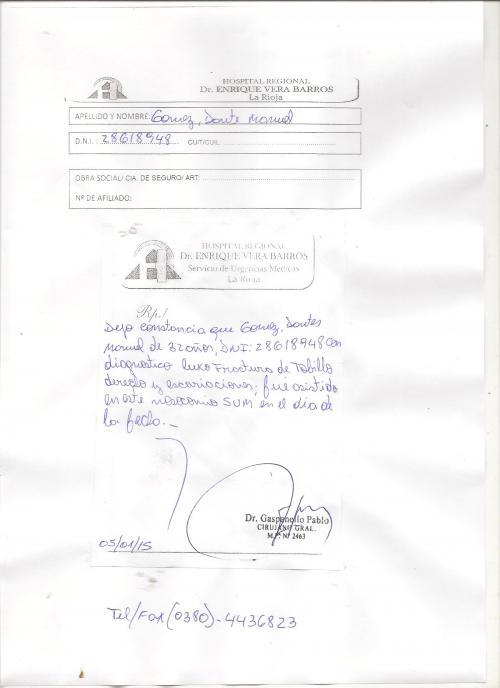 HOSPITAL REGIONAL
Dr. ENRIQUE VERA BARROS
La Rioja
APELLIDO Y NOMBRE: Gomez, Dante Manuel
D.N.I.: 28618948 CUIT/CUIL:
OBRA SOCIAL/ CIA. DE SEGURO/ ART:
Nº DE AFILIADO:
HOSPITAL REGIONAL
Dr. ENRIQUE VERA BARROS
Servicio de Urgencias Medicas
La Rioja
Rp./
Dejo constancia que Gomez, Dantes
Manuel de 32 años, DNI: 28618948 con
diagnostico luxo Fractura de Tobillo
derecho y escoriaciones, fue asistido
en este nosocomio SUM en el dia de
la fecha.-
Dr. Gaspanello Pablo
CIRUJANO GRAL.
M.P. Nº 2463
05/01/15
Tel/Fax (0380)-4436823